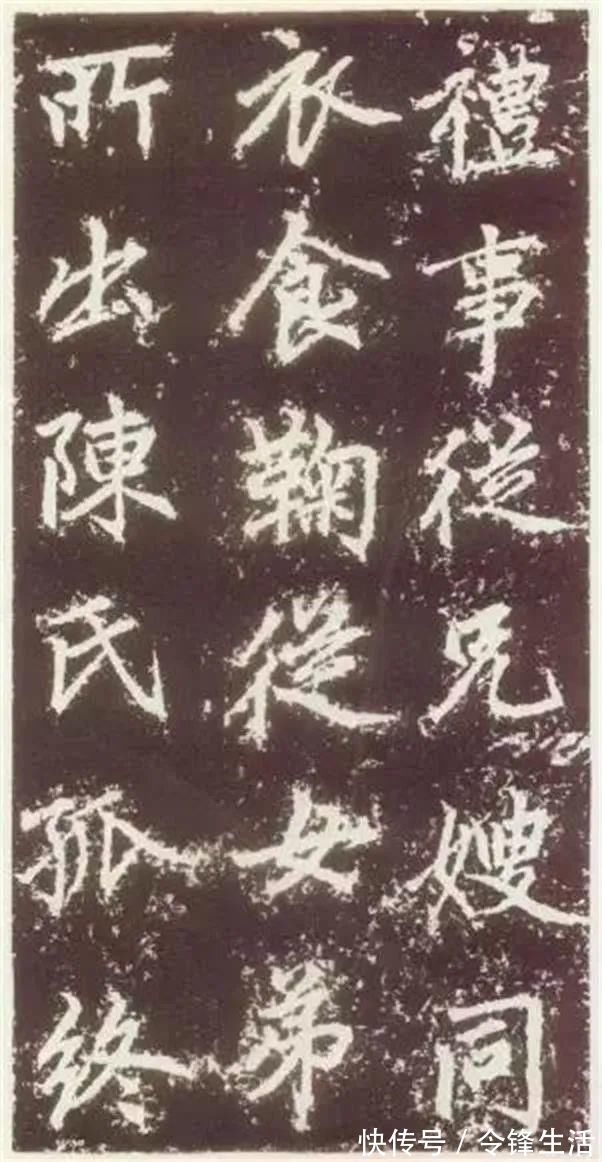 禮事從兄嫂同
衣食鞠從女弟
所出陳氏孤終
快传号/令锋生活